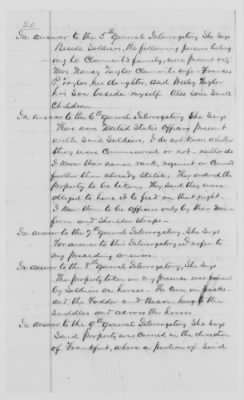 In answer to the 5th General Interrogatory She Says
Beside Soldiers, the following persons belong
ing to Claimant's family, were present viz:
Mrs Nancy Taylor Claimants wife - Frances
P. Taylor his daughter, and Wesley Taylor
his Son beside myself. Also some small
Children
In answer to the 6th General Interrogatory She Says
There were United States Officers present
with said Soldiers, I do not know whether
they were Commissioned or not - neither do
I know their names rank, regiment or Comd
further than already Stated. They ordered the
property to be taken, They said they were
obliged to have it to feed on that night.
I knew them to be officers only by their Uni-
form and Shoulder Straps.
In answer to the 7th General Interrogatory, She Says
For answer to this Interrogatory I refer to
my preceding answer.
In answer to the 8th General Interrogatory, She Says
The property taken in my presence was moved
by Soldiers on horses. The Corn in sacks
and the Fodder and Bacon hung to the
Saddles and across the horses
In answer to the 9th General Interrogatory She Says
Said property was carried in the direction
of Frankfort, where a portion of said